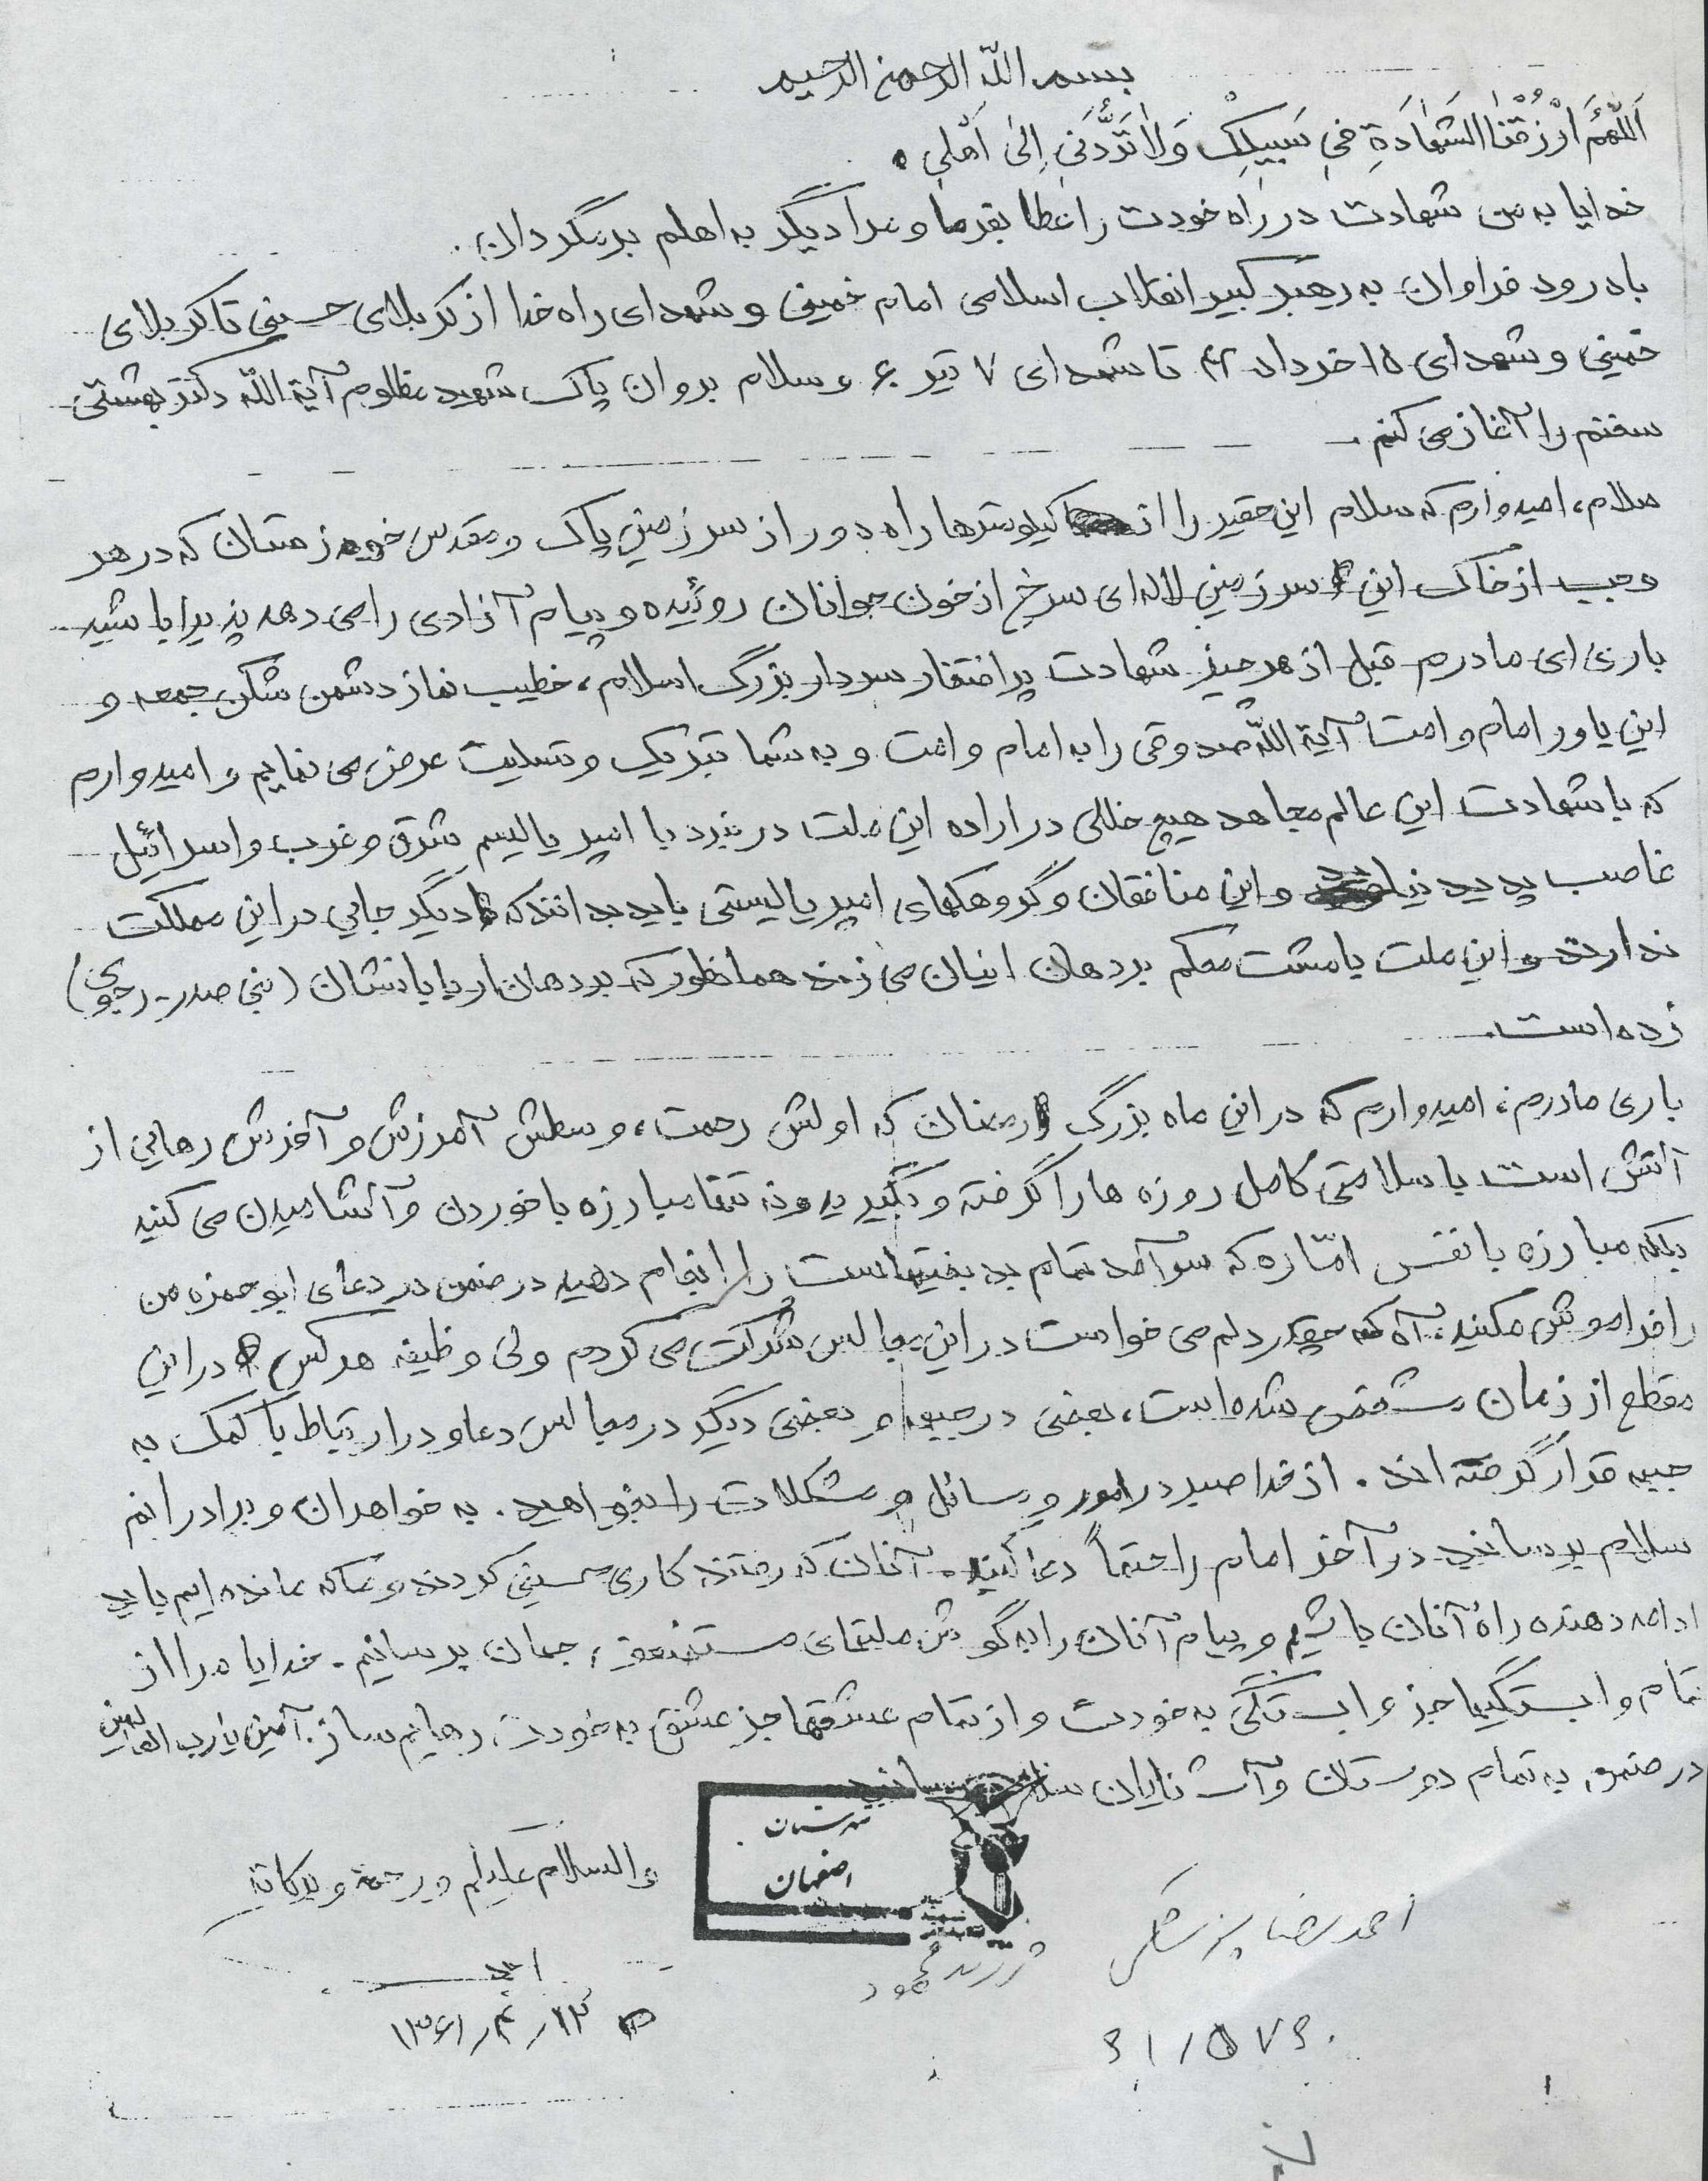 بسم اللّه الرحمن الرحیم
اَللّهُمَّ ارْزُقْنَا الشَّهادَةِ فی سَبیلِکَ وَلا تَرُدَّنی اِلیٰ اَهْلی.
خدایا به من شهادت در راه خودت را عطا بفرما و مرا دیگر به اهلم برنگردان.
با درود فراوان به رهبر کبیر انقلاب اسلامی امام خمینی و شهدای راه خدا از کربلای حسینی تا کربلای
خمینی و شهدای ۱۵ خرداد ۴۲ تا شهدای ۷ تیر ۶۰ و سلام بروان پاک شهید مظلوم آیة اللّه دکتر بهشتی
سخنم را آغاز می کنم.
سلام، امیدوارم که سلام این حقیر را از کیلومترها راه دور از سرزمین پاک و مقدس خوزستان که در هر
وجب از خاک این سرزمین لاله ای سرخ از خون جوانان روئیده و پیام آزادی را می دهد پذیرا باشید
باری ای مادرم قبل از هر چیز شهادت پر افتخار سردار بزرگ اسلام، خطیب نماز دشمن شکن جمعه و
این یاور امام و امت آیة اللّه صدوقی را به امام و امت و به شما تبریک و تسلیت عرض می نمایم و امیدوارم
که با شهادت این عالم مجاهد هیچ خللی در اراده این ملت در نبرد با امپریالیسم شرق و غرب و اسرائیل
غاصب پدید نیاید و این منافقان و گروهکهای امپریالیستی باید بدانند که دیگر جایی در این مملکت
ندارند و این ملت با مشت محکم بر دهان اینان می زند همانطور که بر دهان اربابانشان (بنی صدر - رجوی)
زده است.
باری مادرم، امیدوارم که در این ماه بزرگ رمضان که اولش رحمت، وسطش آمرزش و آخرش رهایی از
آتش است با سلامتی کامل روزه ها را گرفته و بگیرید و نه تنها مبارزه با خوردن و آشامیدن می کنید
بلکه مبارزه با نفس امّاره که سرآمد تمام بدبختیهاست را انجام دهید در ضمن در دعای ابوحمزه من
را فراموش مکنید، آه که چقدر دلم می خواست در این مجالس شرکت می کردم ولی وظیفه هر کس در این
مقطع از زمان مشخص شده است، بعضی در جبهه و بعضی دیگر در مجالس دعا و در ارتباط با کمک به
جبهه قرار گرفته اند. از خدا صبر در امور و مسائل و مشکلات را بخواهید. به خواهران و برادرانم
سلام برسانید در آخر امام را حتماً دعا کنید. آنان که رفتند کاری حسینی کردند و ما که مانده ایم باید
ادامه دهنده راه آنان باشیم و پیام آنان را به گوش ملتهای مستضعف جهان برسانیم. خدایا مرا از
تمام وابستگیها جز وابستگی به خودت و از تمام عشقها جز عشق به خودت رهایم ساز. آمین یا رب العالمین
در ضمن به تمام دوستان و آشنایان سلام برسانید
والسلام علیکم و رحمة و برکاته
شهرستان
اصفهان
احمدرضا پزشکی
فرزند محمود
۱۳۶۱/۴/۱۲